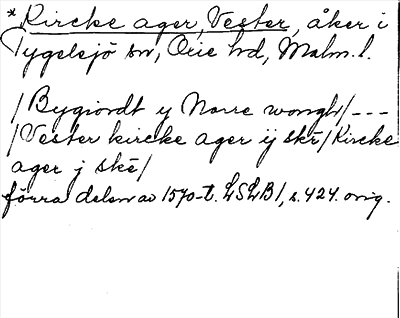 *Kircke ager, Vester, åker i
Tygelsjö sn, Oxie hd, Malm. l.
/Bygiordt y Norre wongh/---
/Vester kircke ager ij skē/Kircke
ager j skē/
förra delen av 1570-t. LSLB1, s. 424. orig.